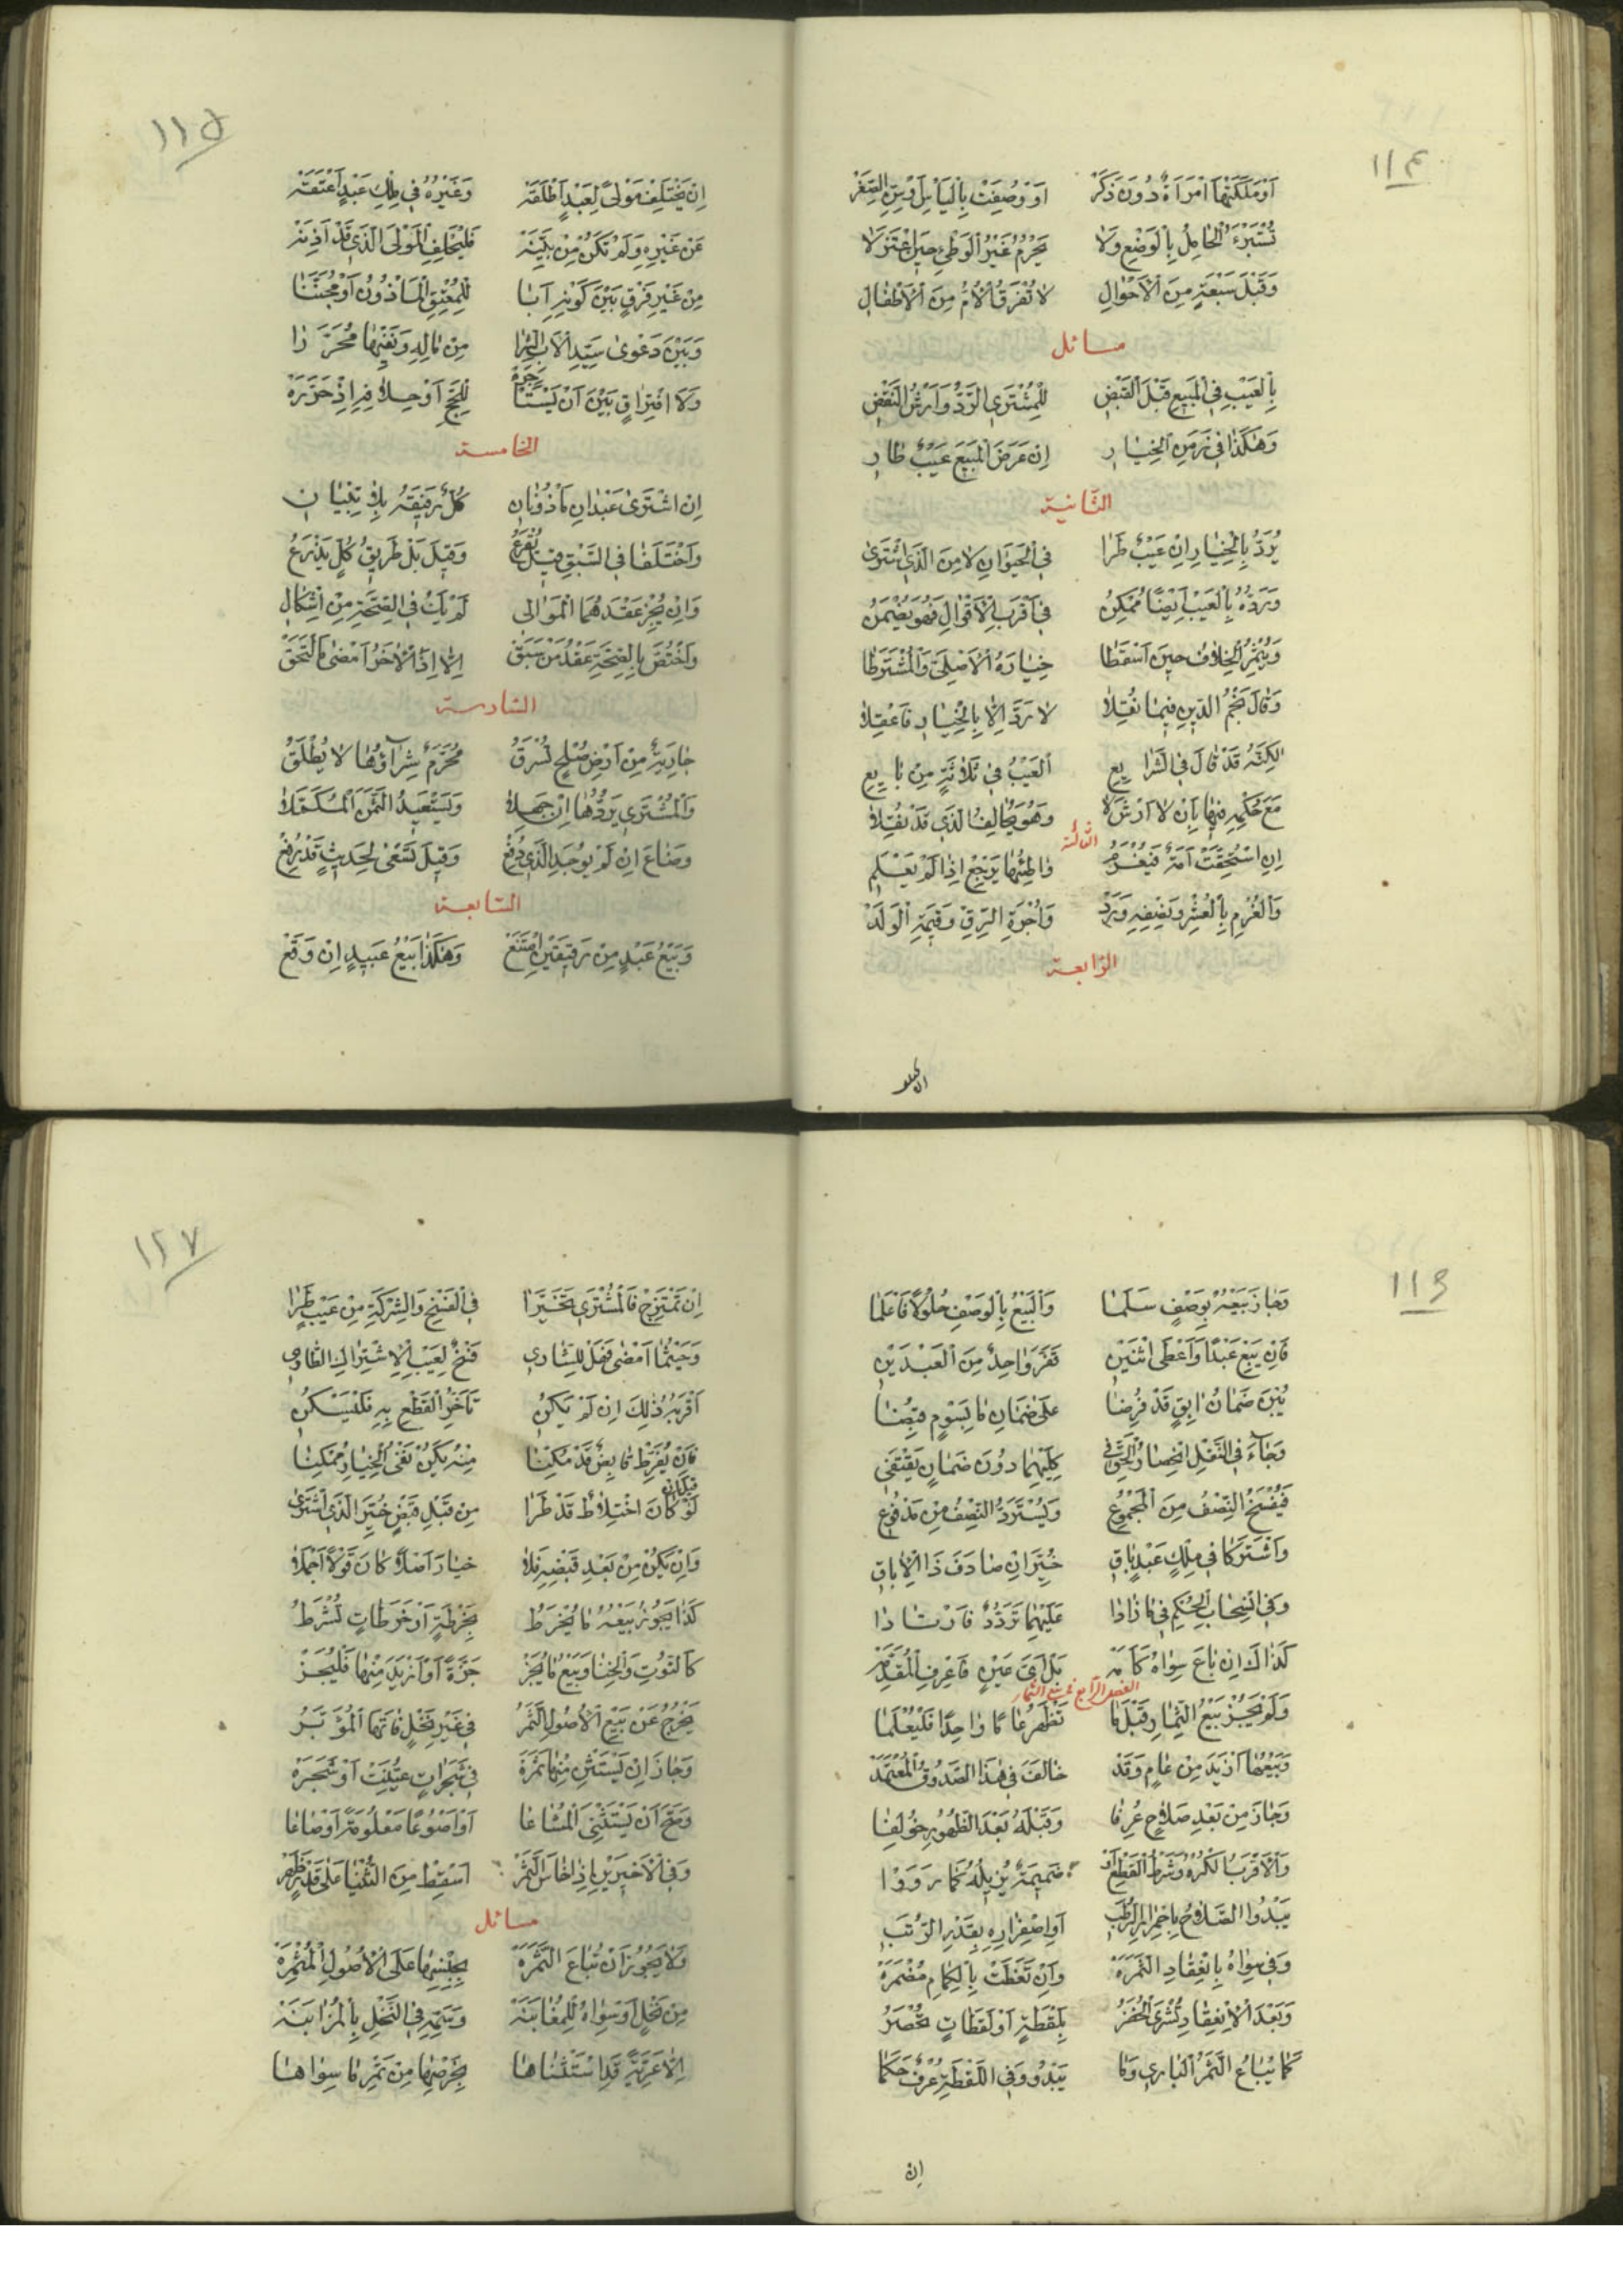 ١١٤
أَوْ مَلَكَتْهَا امْرَأَةٌ دُونَ ذَكَرْ أَوْ وُصِفَتْ بِالْيَأْسِ أَوْ سِنِّ الصِّغَرْ
تُسْتَبْرَءُ الْحَامِلُ بِالْوَضْعِ وَلَا يَحْرُمُ غَيْرُ الْوَطْيِ حِينَ اعْتَزَلَا
وَقَبْلَ سَبْعَةٍ مِنَ الْأَحْوَالِ لَا تُفْرَقُ الْأُمُّ مِنَ الْأَطْفَالِ
مسائل
بِالْعَيْبِ فِي الْمَبِيعِ قَبْلَ الْقَبْضِ لِلْمُشْتَرِي الرَّدُّ وَأَرْشُ النَّقْضِ
وَهٰكَذَا فِي زَمَنِ الْخِيَارِ إِنْ عَرَضَ الْمَبِيعَ عَيْبٌ طَارِ
الثانية
يُرَدُّ بِالْخِيَارِ إِنْ عَيْبٌ طَرَا فِي الْحَيَوَانِ لَا مِنَ الَّذِي اشْتَرَى
وَرَدُّهُ بِالْعَيْبِ أَيْضًا مُمْكِنُ فِي أَقْرَبِ الْأَقْوَالِ فَهُوَ يَضْمَنُ
وَيُثْمِرُ الْخِلَافُ حِينَ أَسْقَطَا خِيَارَهُ الْأَصْلِيَّ وَالْمُشْتَرَطَا
وَقَالَ نَجْمُ الدِّينِ فِيمَا نُقِلَا لَا رَدَّ إِلَّا بِالْخِيَارِ فَاعْقِلَا
لٰكِنَّهُ قَدْ قَالَ فِي الشَّرَايِعِ الْعَيْبُ فِي ثَلَاثَةٍ مِنْ بَايِعِ
مَعَ حُكْمِهِ فِيهَا بِأَنْ لَا أَرْشَ لَا وَهُوَ يُخَالِفُ الَّذِي قَدْ نُقِلَا
الثالثة
إِنِ اسْتُحِقَّتْ أَمَةٌ فَيَغْرَمُ وَاطِئُهَا يَرْجِعْ إِذَا لَمْ يَعْلَمِ
وَالْغُرْمِ بِالْعُشْرِ وَنِصْفِهِ وَرَدْ وَأُجْرَةِ الرِّقِّ وَقِيمَةِ الْوَلَدْ
الرابعة
١١٥
إِنْ يَخْتَلِفْ مَوْلًى لِعَبْدٍ أَطْلَقَهْ وَغَيْرُهُ فِي مِلْكِ عَبْدٍ أَعْتَقَهْ
عَنْ غَيْرِهِ وَلَمْ تَكُنْ مِنْ بَيِّنَهْ فَلْيَحْلِفِ الْمَوْلَى الَّذِي قَدْ أَذِنَهْ
مِنْ غَيْرِ فَرْقٍ بَيْنَ كَوْنِهِ أَبَا لِلْمُعْتِقِ الْمَأْذُونِ أَوْ مُجْتَنَبَا
وَبَيْنَ دَعْوَى سَيِّدِ الْأَبِ الشِّرَا مِنْ مَالِهِ وَنَفْيِهَا مُحَرَّرَا
وَلَا افْتِرَاقٍ بَيْنَ أَنْ يَسْتَأْجِرَهْ لِلْحَجِّ أَوْ حِلًّا فِيهِ إِذْ حَرَّرَهْ
الخامسة
إِنِ اشْتَرَى عَبْدَانِ مَأْذُونَانِ كُلٌّ رَفِيقَهُ بِلَا تِبْيَانِ
وَاخْتَلَفَا فِي السَّبْقِ قِيلَ يُقْرَعُ وَقِيلَ بَلْ طَرِيقُ كُلٍّ يُذْرَعُ
وَإِنْ يُجِزْ عَقْدَهُمَا الْمَوَالِي لَمْ يَكُ فِي الصِّحَّةِ مِنْ إِشْكَالِ
وَاخْتُصَّ بِالصِّحَّةِ عَقْدُ مَنْ سَبَقْ إِلَّا إِذِ الْآخَرُ أَمْضَى مَا لَحَقْ
السادسة
جَارِيَةٌ مِنْ أَرْضِ صُلْحٍ تُسْرَقُ مُحَرَّمٌ شِرَاؤُهَا لَا يُطْلَقُ
وَالْمُشْتَرِي يَرُدُّهَا إِنْ جَهِلَا وَيَسْتَعِيدُ الثَّمَنَ الْمُسْتَكْمَلَا
وَضَاعَ إِنْ لَمْ يُوجَدِ الَّذِي دُفِعْ وَقِيلَ تَسْعَى لِحَدِيثٍ قَدْ رُفِعْ
السابعة
وَبَيْعُ عَبْدٍ مِنْ رَقِيقَيْنِ امْتَنَعْ وَهٰكَذَا بَيْعُ عَبِيدٍ إِنْ وَقَعْ
١١٦
وَجَازَ بَيْعُهُ بِوَصْفٍ سَلَمَا وَالْبَيْعُ بِالْوَصْفِ حُلُولًا فَاعْلَمَا
فَإِنْ يَبِعْ عَبْدًا وَأَعْطَى اثْنَيْنِ فَفَرَّ وَاحِدٌ مِنَ الْعَبْدَيْنِ
يُبْنَ ضَمَانُ آبِقٍ قَدْ فُرِضَا عَلَى ضَمَانِ مَا بِسَوْمٍ قُبِضَا
وَجَاءَ فِي النَّقْلِ انْحِصَارُ الْحَقِّ فِي كِلَيْهِمَا دُونَ ضَمَانٍ يَقْتَفِي
فَيُفْسَخُ النِّصْفُ مِنَ الْمَجْمُوعِ وَيُسْتَرَدُّ النِّصْفُ مِنْ مَدْفُوعِ
وَاشْتَرَكَا فِي مِلْكِ عَبْدٍ بَاقِ خُيِّرَ إِنْ صَادَفَ ذَا الْإِبَاقِ
وَفِي انْسِحَابِ الْحُكْمِ فِي مَا زَادَا عَلَيْهِمَا تَرَدُّدٌ فَارْتَادَا
كَذَاكَ إِنْ بَاعَ سِوَاهُ كَأَمَهْ بَلْ أَيَّ عَيْنٍ فَاعْرِفِ الْمُقَدَّمَهْ
الفصل الرابع في بيع الثمار
وَلَمْ يَجُزْ بَيْعُ الثِّمَارِ قَبْلَ مَا تَظْهَرُ عَامًا وَاحِدًا فَلْيُعْلَمَا
وَبَيْعُهَا أَزْيَدَ مِنْ عَامٍ وَقَدْ خَالَفَ فِي هٰذَا الصَّدُوقُ الْمُعْتَمَدْ
وَجَازَ مِنْ بَعْدِ صَلَاحٍ عُرِفَا وَقَبْلَهُ بَعْدَ الظُّهُورِ خُولِفَا
وَالْأَقْرَبُ الْكُرْهُ وَشَرْطُ الْقَطْعِ أَوْ ضَمِيمَةٌ يُزِيلُهُ كَمَا رَوَوْا
يَبْدُوا الصَّلَاحُ بِاحْمِرَارِ الرُّطَبِ أَوِ اصْفِرَارِهِ بِقَدْرِ الرُّتَبِ
وَفِي سِوَاهُ بِانْعِقَادِ الثَّمَرَهْ وَإِنْ تَغَطَّتْ بِالْكِمَامِ مُضْمَرَهْ
وَبَعْدَ الْانْعِقَادِ تُشْرَى الْخُضَرُ بِلَقْطَةٍ أَوْ لَقَطَاتٍ تُحْصَرُ
كَمَا يُبَاعُ الثَّمَرُ الْبَارِي وَمَا يَبْدُو وَفِي اللَّقْطَةِ عُرْفٌ حَكَمَا
إن
١٢٧
إِنْ تَمْتَزِجْ فَالْمُشْتَرِي تَخَيَّرَا فِي الْفَسْخِ وَالشِّرْكَةِ مِنْ عَيْبٍ طَرَا
وَحَيْثُمَا أَمْضَى فَهَلْ لِلشَّارِي فَسْخٌ لِعَيْبِ الْاشْتِرَاكِ الطَّارِي
أَقْرَبُهُ ذٰلِكَ إِنْ لَمْ يَكُنْ تَأَخُّرُ الْقَطْعِ بِهِ فَلْيَسْكُنِ
فَإِنْ يُفَرِّطْ قَابِضٌ قَدْ مَكَّنَا مِنْهُ يَكُنْ نَفْيُ الْخِيَارِ مُمْكِنَا
لَوْ كَانَ اخْتِلَاطٌ قَدْ طَرَا مِنْ قَبْلِ قَبْضٍ خُيِّرَ الَّذِي اشْتَرَى
وَإِنْ يَكُنْ مِنْ بَعْدِ قَبْضِهِ فَلَا خِيَارَ أَصْلًا كَانَ قَوْلًا أَجْمَلَا
كَذَا يَجُوزُ بَيْعُهُ مَا يُخْرَطُ بِخَرْطَةٍ أَوْ خَرَطَاتٍ تُشْرَطُ
كَالتُّوتِ وَالْحِنَّا وَبَيْعُ مَا يُجَزْ جَزَّةً أَوْ أَزْيَدَ مِنْهَا فَلْيُجَزْ
يَخْرُجُ عَنْ بَيْعِ الْأُصُولِ الثَّمَرُ فِي غَيْرِ نَخْلٍ فَاتَهَا الْمُؤَبَّرُ
وَجَازَ أَنْ يَسْتَثْنِ مِنْهَا ثَمَرَةَ فِي شَجَرَاتٍ عُيِّنَتْ أَوْ شَجَرَهْ
وَصَحَّ أَنْ يَسْتَثْنِيَ الْمُشَاعَا أَوْ أَصْوُعًا مَعْلُومَةً أَوْ صَاعَا
وَفِي الْأَخِيرَيْنِ إِذَا خَاسَ الثَّمَرْ أَسْقِطْ مِنَ الثُّنْيَا عَلَى قَدْرٍ ظَهَرْ
مسائل
وَلَا يَجُوزُ أَنْ تُبَاعَ الثَّمَرَهْ بِجِنْسِهَا عَلَى الْأُصُولِ الْمُثْمِرَهْ
مِنْ نَخْلٍ أَوْ سِوَاهُ لِلْمُغَابَنَهْ وَسَمِّهِ فِي النَّخْلِ بِالْمُزَابَنَهْ
إِلَّا عَرِيَّةً قَدِ اسْتَثْنَاهَا بِخَرْصِهَا مِنْ تَمْرِ مَا سِوَاهَا